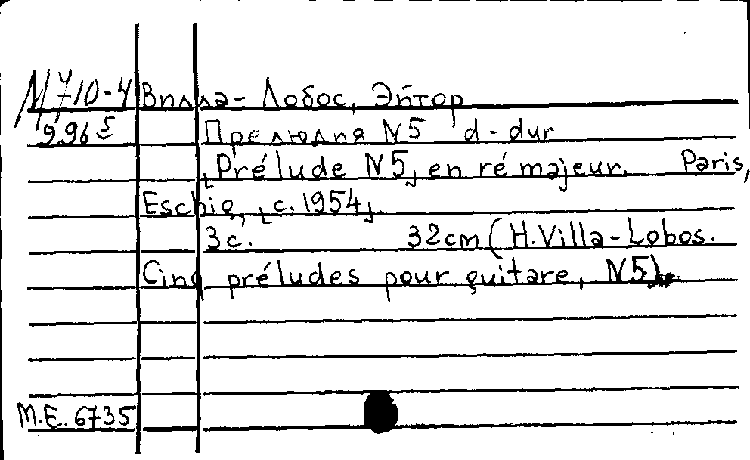 М 710-4 Вилла-Лобос, Эйтор
996 Прелюдия N5 d-dur
[Prélude N5] en ré majeur. Paris,
Eschig, [c. 1954].
3c. 32cm (H. Villa-Lobos.
Cinq préludes pour guitare, N5).
M.E. 6735